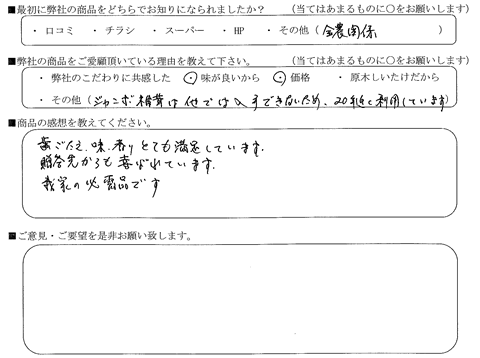 ■最初に弊社の商品をどちらでお知りになられましたか？　（当てはあまるものに○をお願いします）
・ 口コミ　・ チラシ　・ スーパー　・ HP　・ その他（ 全農関係 ）
■弊社の商品をご愛顧頂いている理由を教えて下さい。　（当てはあまるものに○をお願いします）
・ 弊社のこだわりに共感した　・ 味が良いから　・ 価格　・ 原木しいたけだから
・ その他（ ジャンボ椎茸は他では入手できないため、20年近く利用しています）
■商品の感想を教えてください。
歯ごたえ、味、香りとても満足しています。
贈答先からも喜ばれています。
我家の必需品です
■ご意見・ご要望を是非お願い致します。